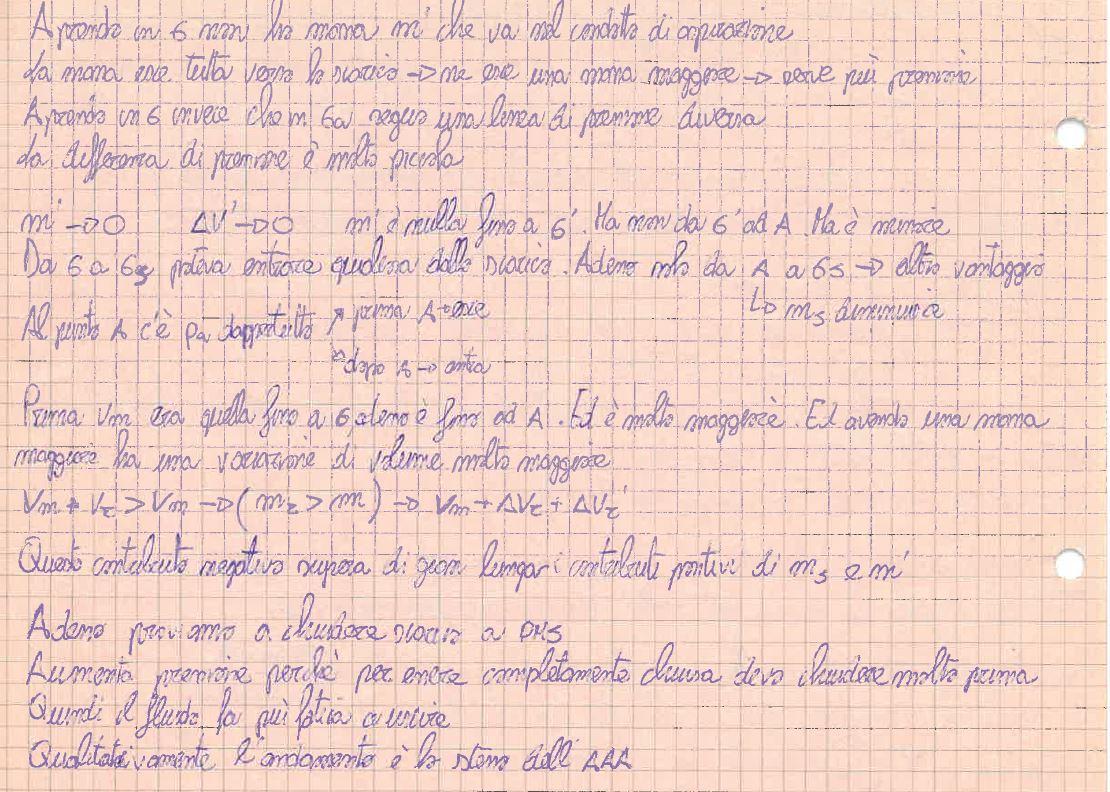 Aprendo in 6 non ho massa m' che va nel condotto di aspirazione
La massa esce tutta verso lo scarico → ne esce una massa maggiore → serve più pressione
Aprendo in 6 invece che in 6a seguo una linea di pressione diversa
La differenza di pressione è molto piccola
m' → 0 ΔV' → 0 m' è nulla fino a 6'. Ma non da 6' ad A. Ma è minore
Da 6 a 6s poteva entrare qualcosa dallo scarico. Adesso solo da A a 6s → altro vantaggio
↳ ms diminuisce
Al punto A c'è pa dappertutto ↗ prima A → esce
↘ dopo A → entra
Prima Vm era quella fino a 6, adesso è fino ad A. Ed è molto maggiore. Ed avendo una massa
maggiore ha una variazione di volume molto maggiore
Vm + Vz > Vm → (mz > m) → Vm + ΔVz + ΔVz'
Questo contributo negativo supera di gran lunga i contributi positivi di ms e m'
Adesso proviamo a chiudere scarico a PMS
Aumenta pressione perché per essere completamente chiusa devo chiudere molto prima
Quindi il fluido fa più fatica a uscire
Qualitativamente l'andamento è lo stesso dell'AAA